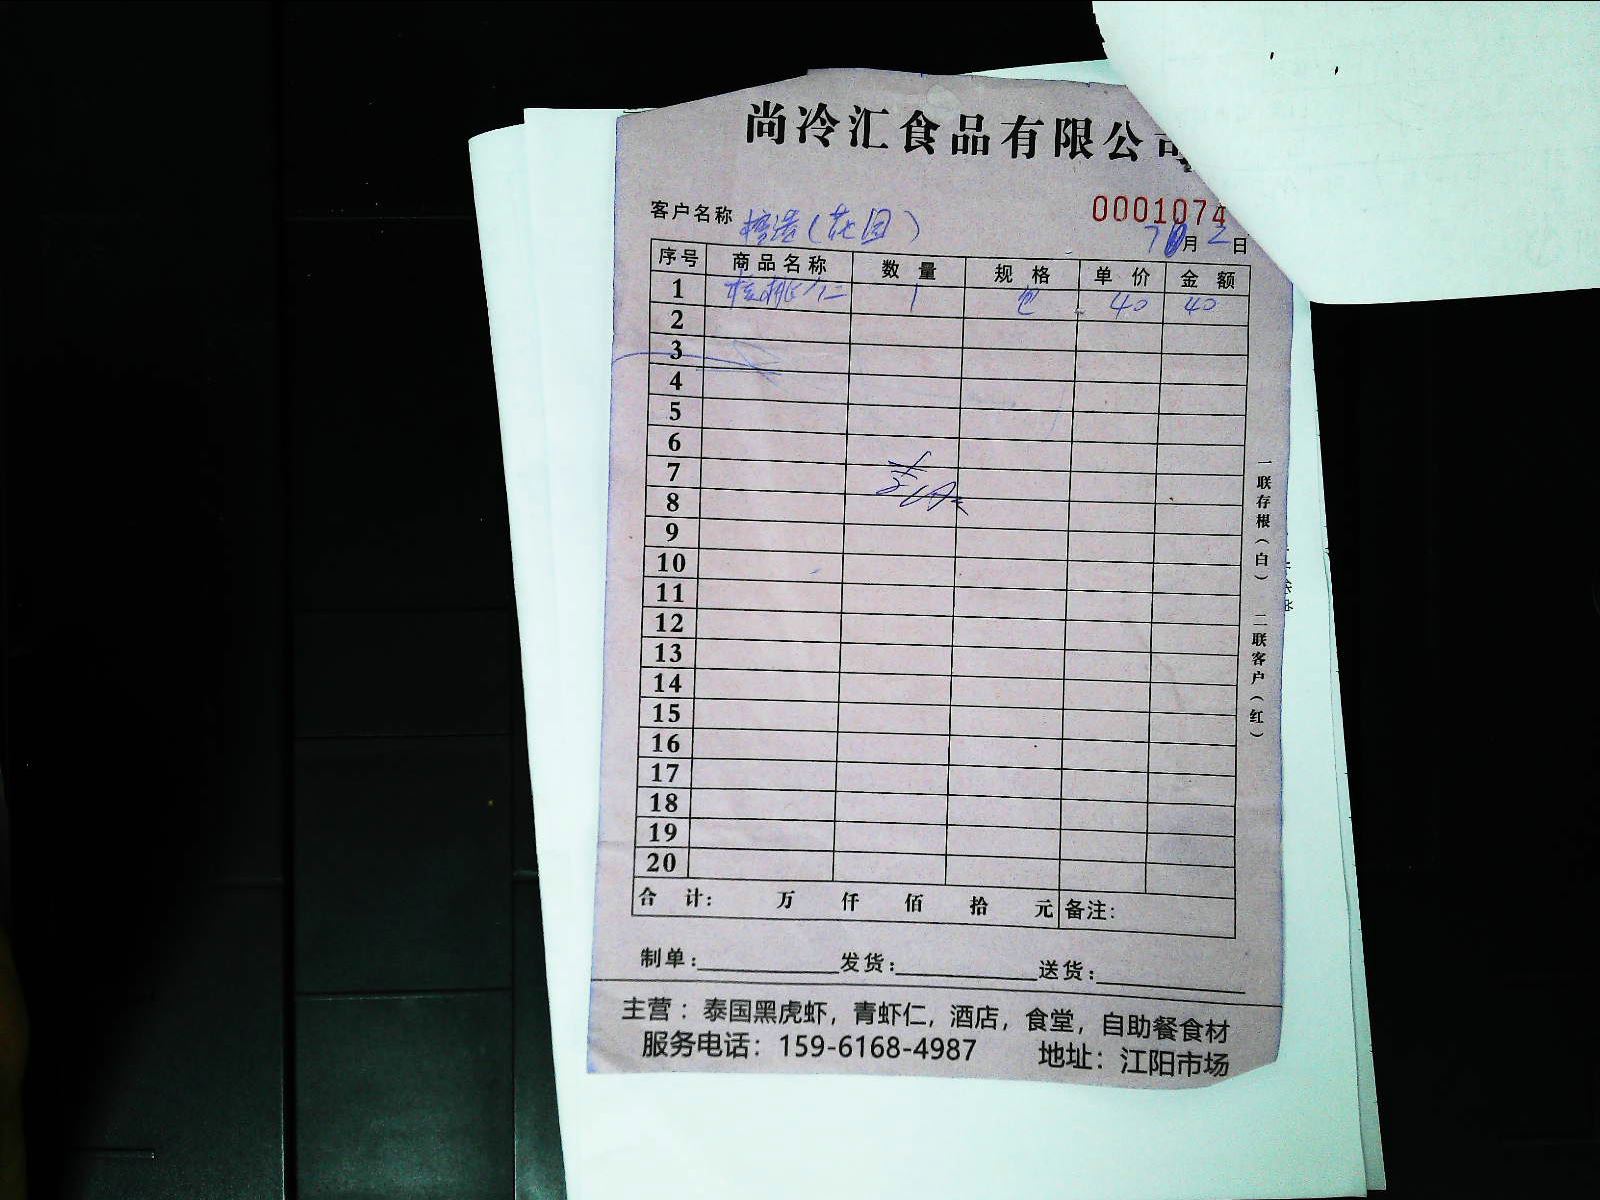 尚冷汇食品有限公司
客户名称 (花园) 0001074
月2日
序号 商品名称 数量 规格 单价 金额
1 核桃仁 1 包 40 40
2
3
4
5
6
7
8
9
10
11
12
13
14
15
16
17
18
19
20
合计: 万 仟 佰 拾 元 备注:
制单: 发货: 送货:
主营：泰国黑虎虾，青虾仁，酒店，食堂，自助餐食材
服务电话：159-6168-4987 地址：江阳市场
一联存根(白) 二联客户(红)